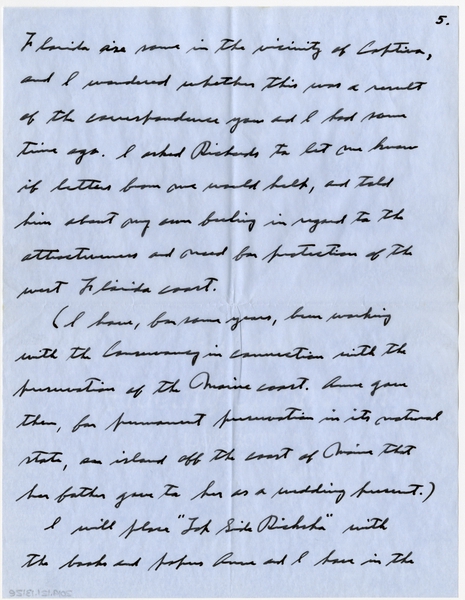 5.
Florida are some in the vicinity of Captiva,
and I wondered whether this was a result
of the correspondence you and I had some
time ago. I asked Richards to let me know
if letters from me would help, and told
him about my own feeling in regard to the
attractiveness and need for protection of the
west Florida coast.
(I have, for some years, been working
with the Conservancy in connection with the
preservation of the Maine coast. Anne gave
them, for permanent preservation in its natural
state, an island off the coast of Maine that
her father gave to her as a wedding present.)
I will place "Top Side Ricksha" with
the books and papers Anne and I have in the